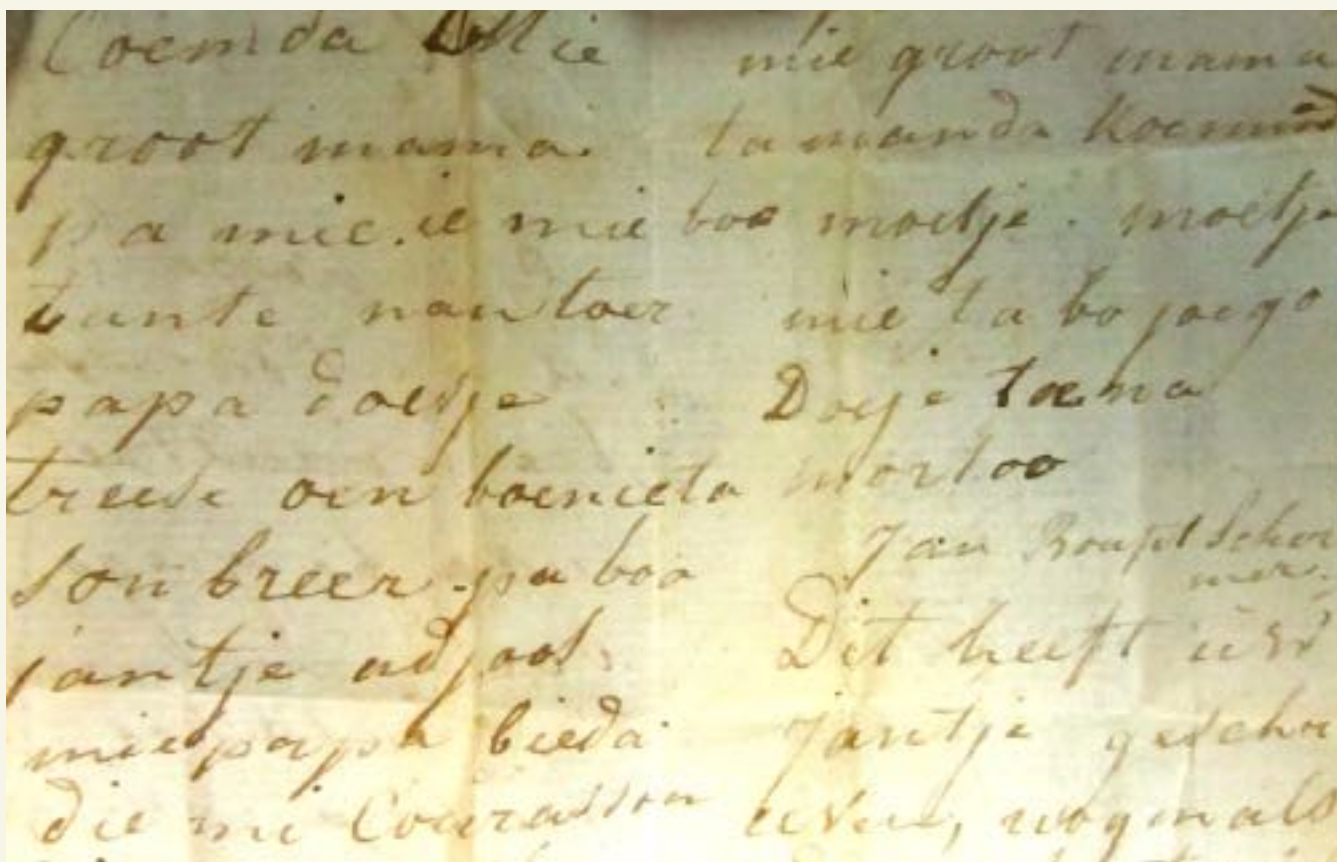 Coemda
groot mama.
pa mie. ie mie boo
tante nan toer
papa doesje
treese oen boenieta
sonbreer pa boo
jantje adjoos
mie papa bieda
die mi Courasson
mie groot mama
ta manda
moetje. moetje
mie ta bo joego
Doeje tæna
mortoo
Jan Schor
mer
Dit heeft
Jantje geschr
even, nogmals